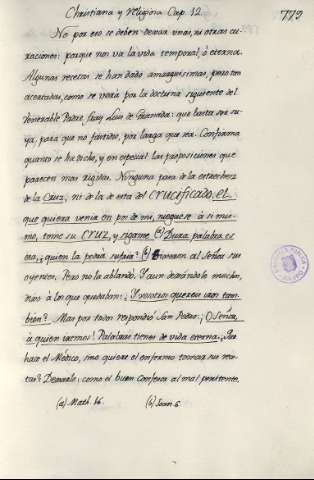 Christiana y religiosa Cap. 12.
779
No por eso se deben dexar unas, ni otras cu-
raciones: porque nos va la vida temporal, ò eterna.
Algunas recetas se han dado amarguissimas, pero tan
acertadas, como se verà por la doctrina siguiente del
Venerable Padre, fray Luis de Granada: que basta ser su-
ya, para que no fastidie, por larga que sea. Conforma
quanto se ha dicho, y en especial las proposiciones que
parecen mas rigidas. Ninguna passa de la estrechez
de la Cruz, ni de la de esta del CRUCIFICADO, el
que quiera venir en pos de mi, nieguese à si mis-
mo, tome su CRUZ, y sigame. (a) Dura palabra es
esta, ¿quien la podrà sufrir? (b) al Señor sus
oyentes. Pero no la ablandò. Y aun dexandole muchos,
dixo à los que quedaban: ¿Y vosotros quereis iros tam-
bien? Mas por todos respondiò San Pedro: ¡O Señor,
à quien iremos! Palabras tienes de vida eterna.
hace el Medico, sino quiere el enfermo tomar sus rece-
tas? Dexarale: como el buen Confesor al mal penitente.
(a) Math. 16. (b) Joan. 6.